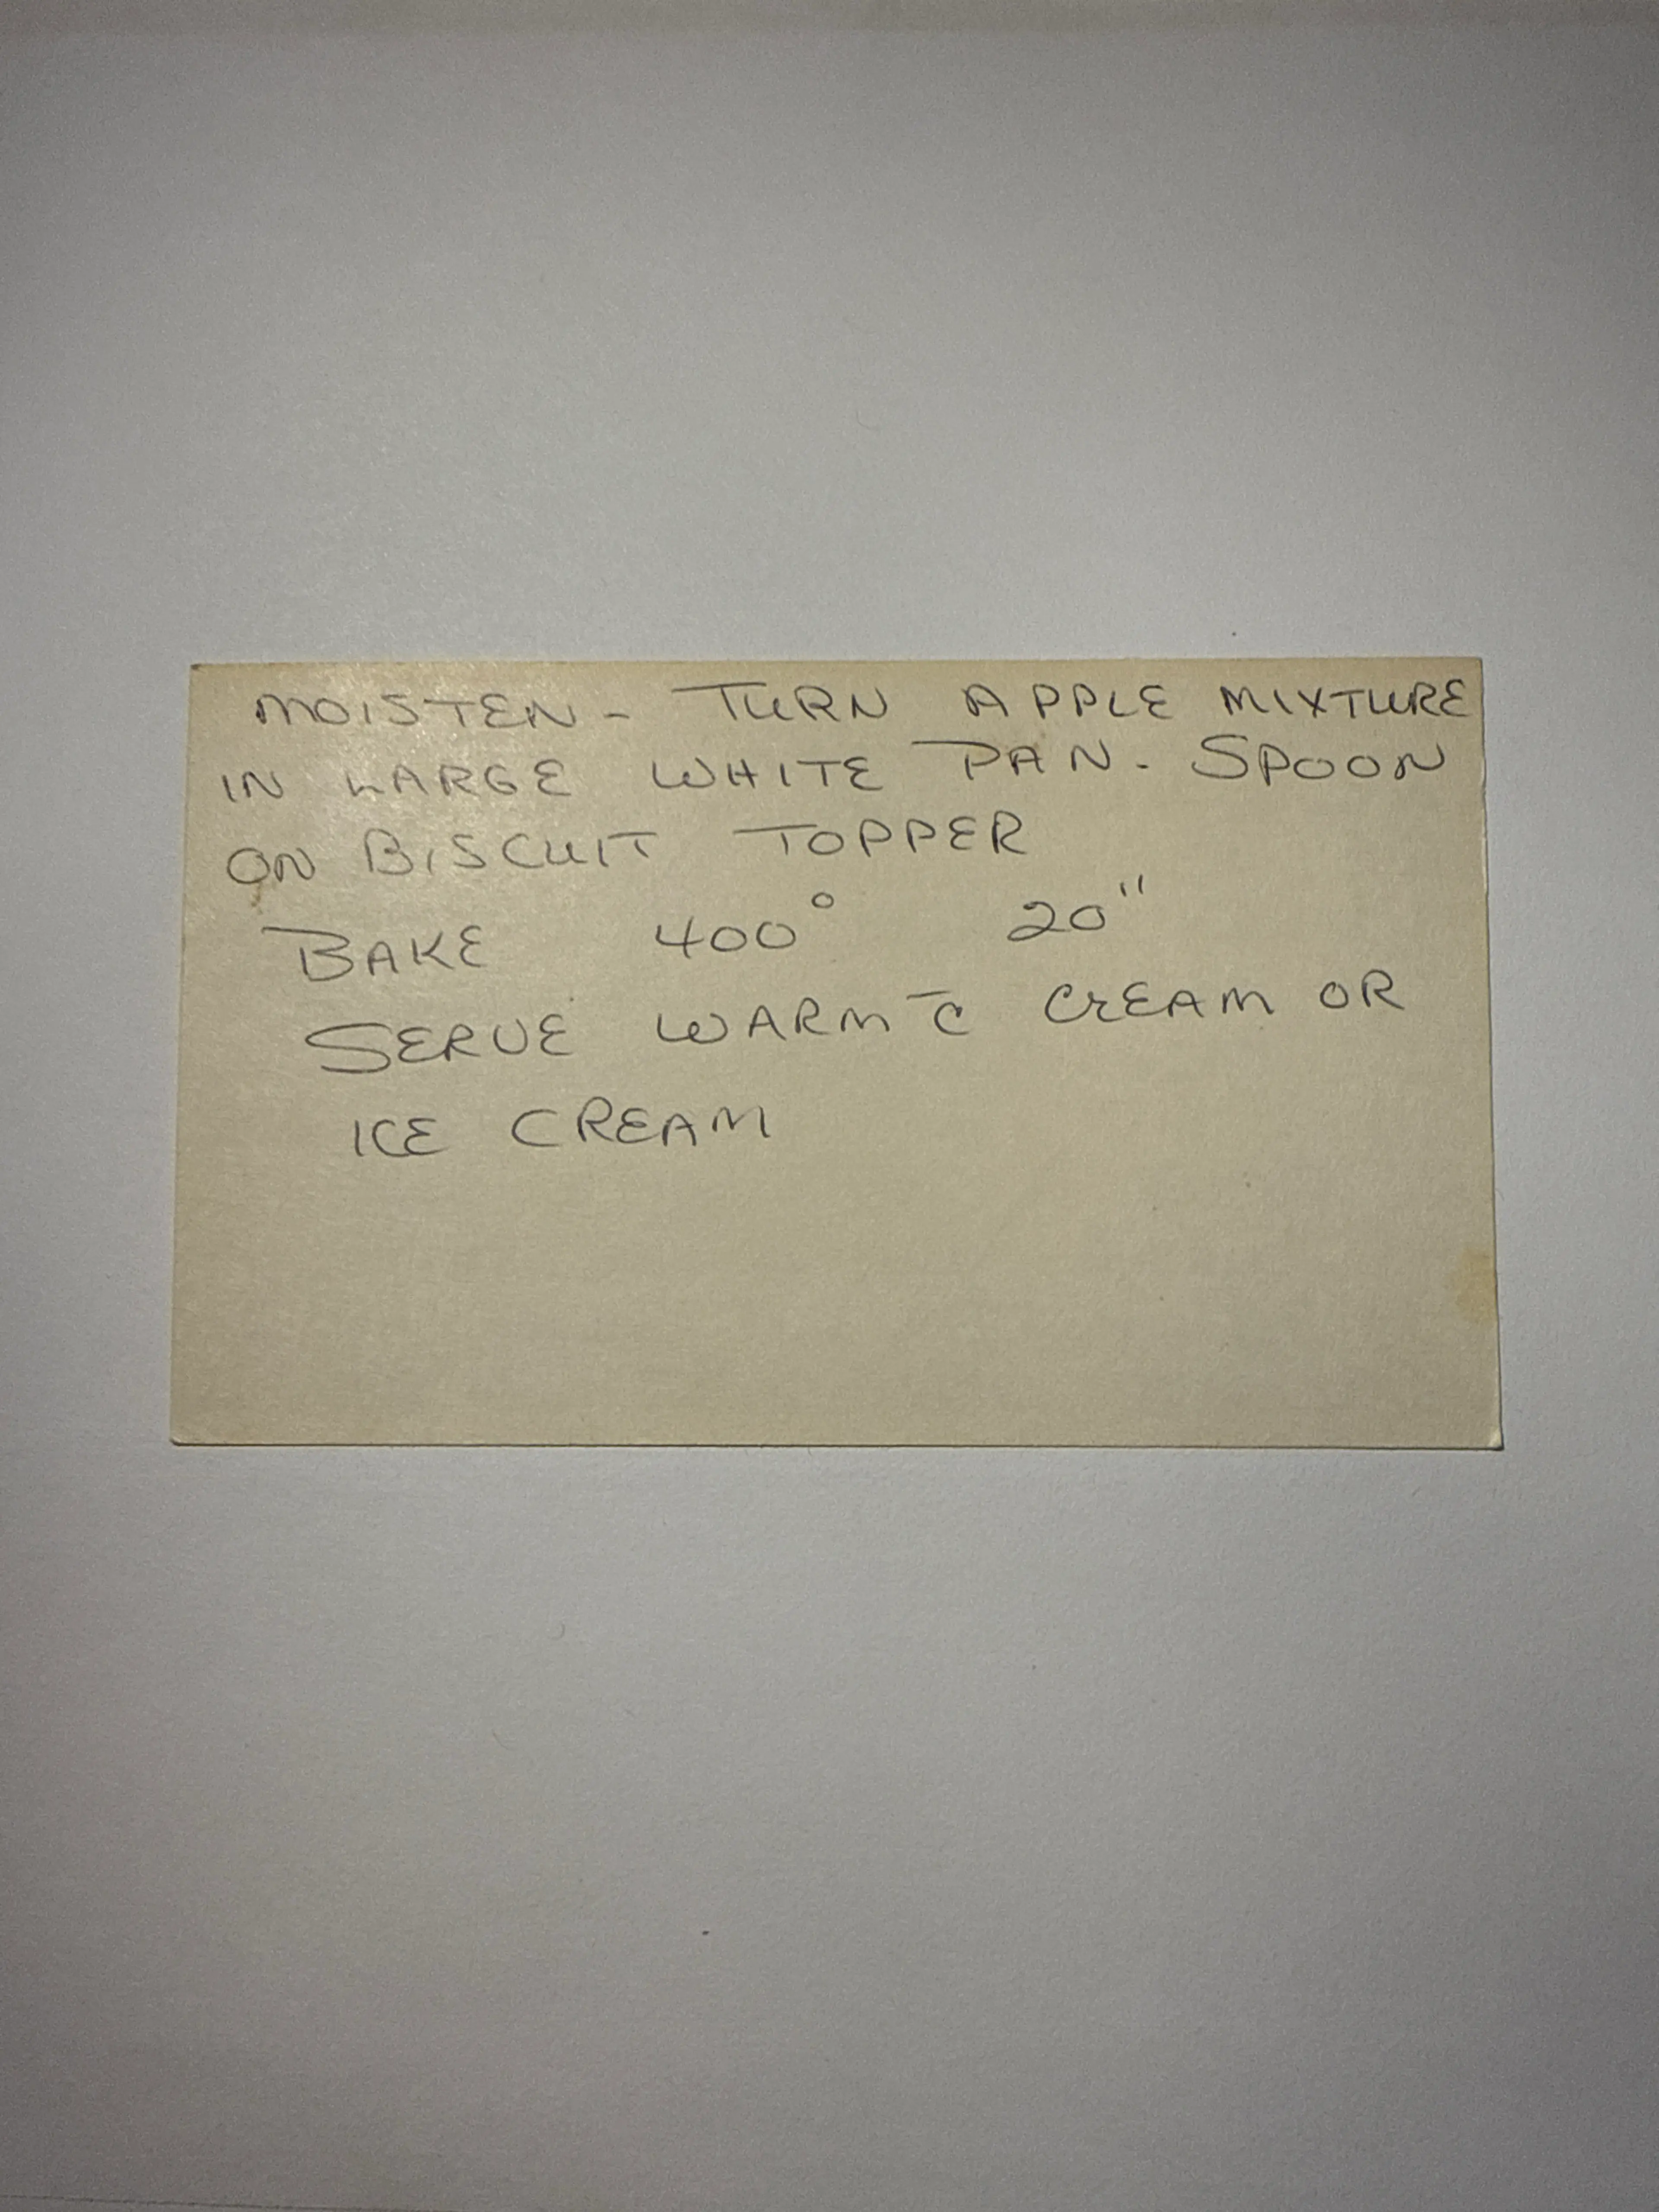 MOISTEN - TURN APPLE MIXTURE
IN LARGE WHITE PAN. SPOON
ON BISCUIT TOPPER
BAKE 400° 20"
SERVE WARM c̄ CREAM OR
ICE CREAM